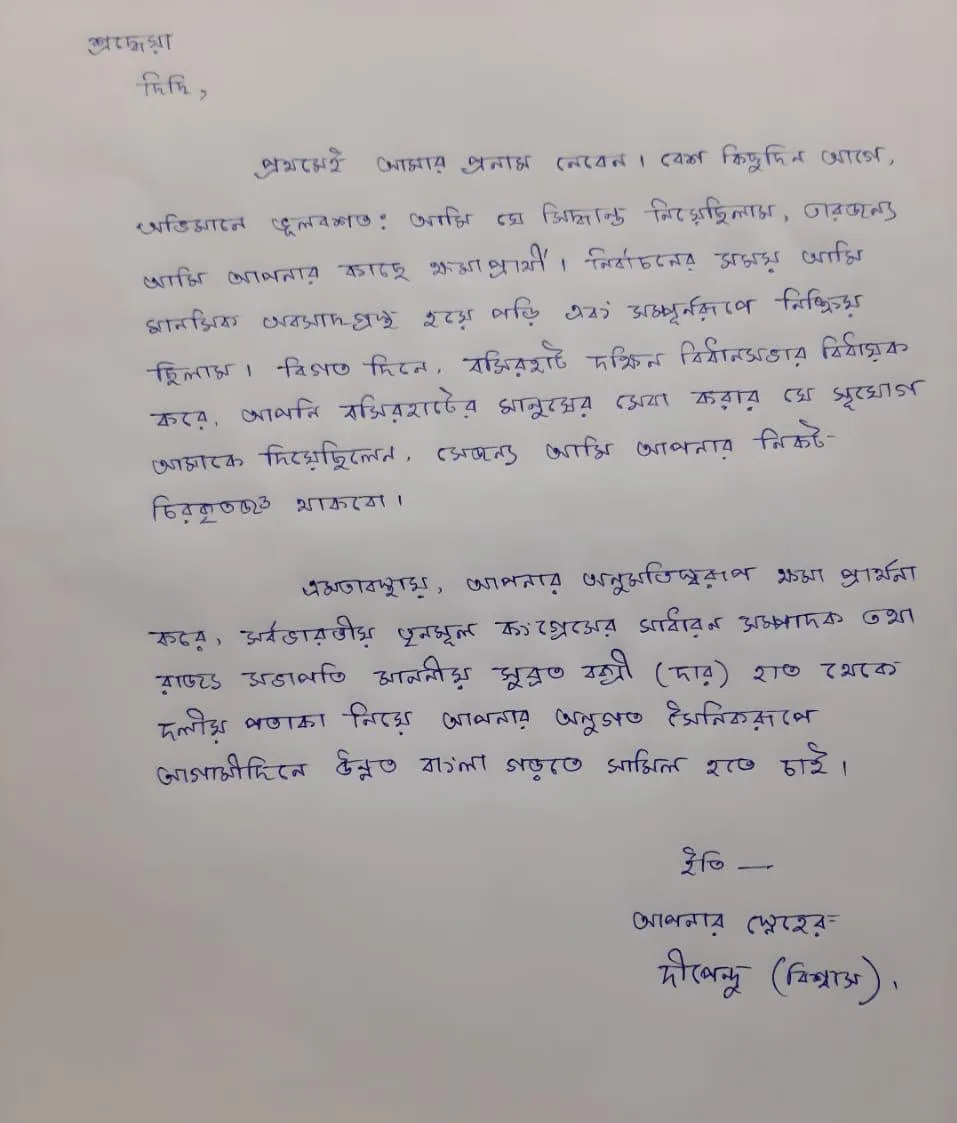 শ্রদ্ধেয়া
দিদি,
প্রথমেই আমার প্রনাম নেবেন। বেশ কিছুদিন আগে,
অভিমানে ভূলবশত: আমি যে সিদ্ধান্ত নিয়েছিলাম, তারজন্য
আমি আপনার কাছে ক্ষমাপ্রার্থী। নির্বাচনের সময় আমি
মানসিক অবসাদগ্রস্থ হয়ে পড়ি এবং সম্পূর্নরূপে নিষ্ক্রিয়
ছিলাম। বিগত দিনে, বসিরহাট দক্ষিন বিধানসভার বিধায়ক
করে, আপনি বসিরহাটের মানুষের সেবা করার যে সূযোগ
আমাকে দিয়েছিলেন, সেজন্য আমি আপনার নিকট-
চিরকৃতজ্ঞ থাকবো।
এমতাবস্থায়, আপনার অনুমতিস্বরূপ ক্ষমা প্রার্থনা
করে, সর্বভারতীয় তৃনমূল কংগ্রেসের সাধারন সম্পাদক তথা
রাজ্য সভাপতি মাননীয় সুব্রত বক্সী (দার) হাত থেকে
দলীয় পতাকা নিয়ে আপনার অনুগত সৈনিকরূপে
আগামীদিনে উন্নত বাংলা গড়তে সামিল হতে চাই।
ইতি —
আপনার স্নেহের-
দীপেন্দু (বিশ্বাস).